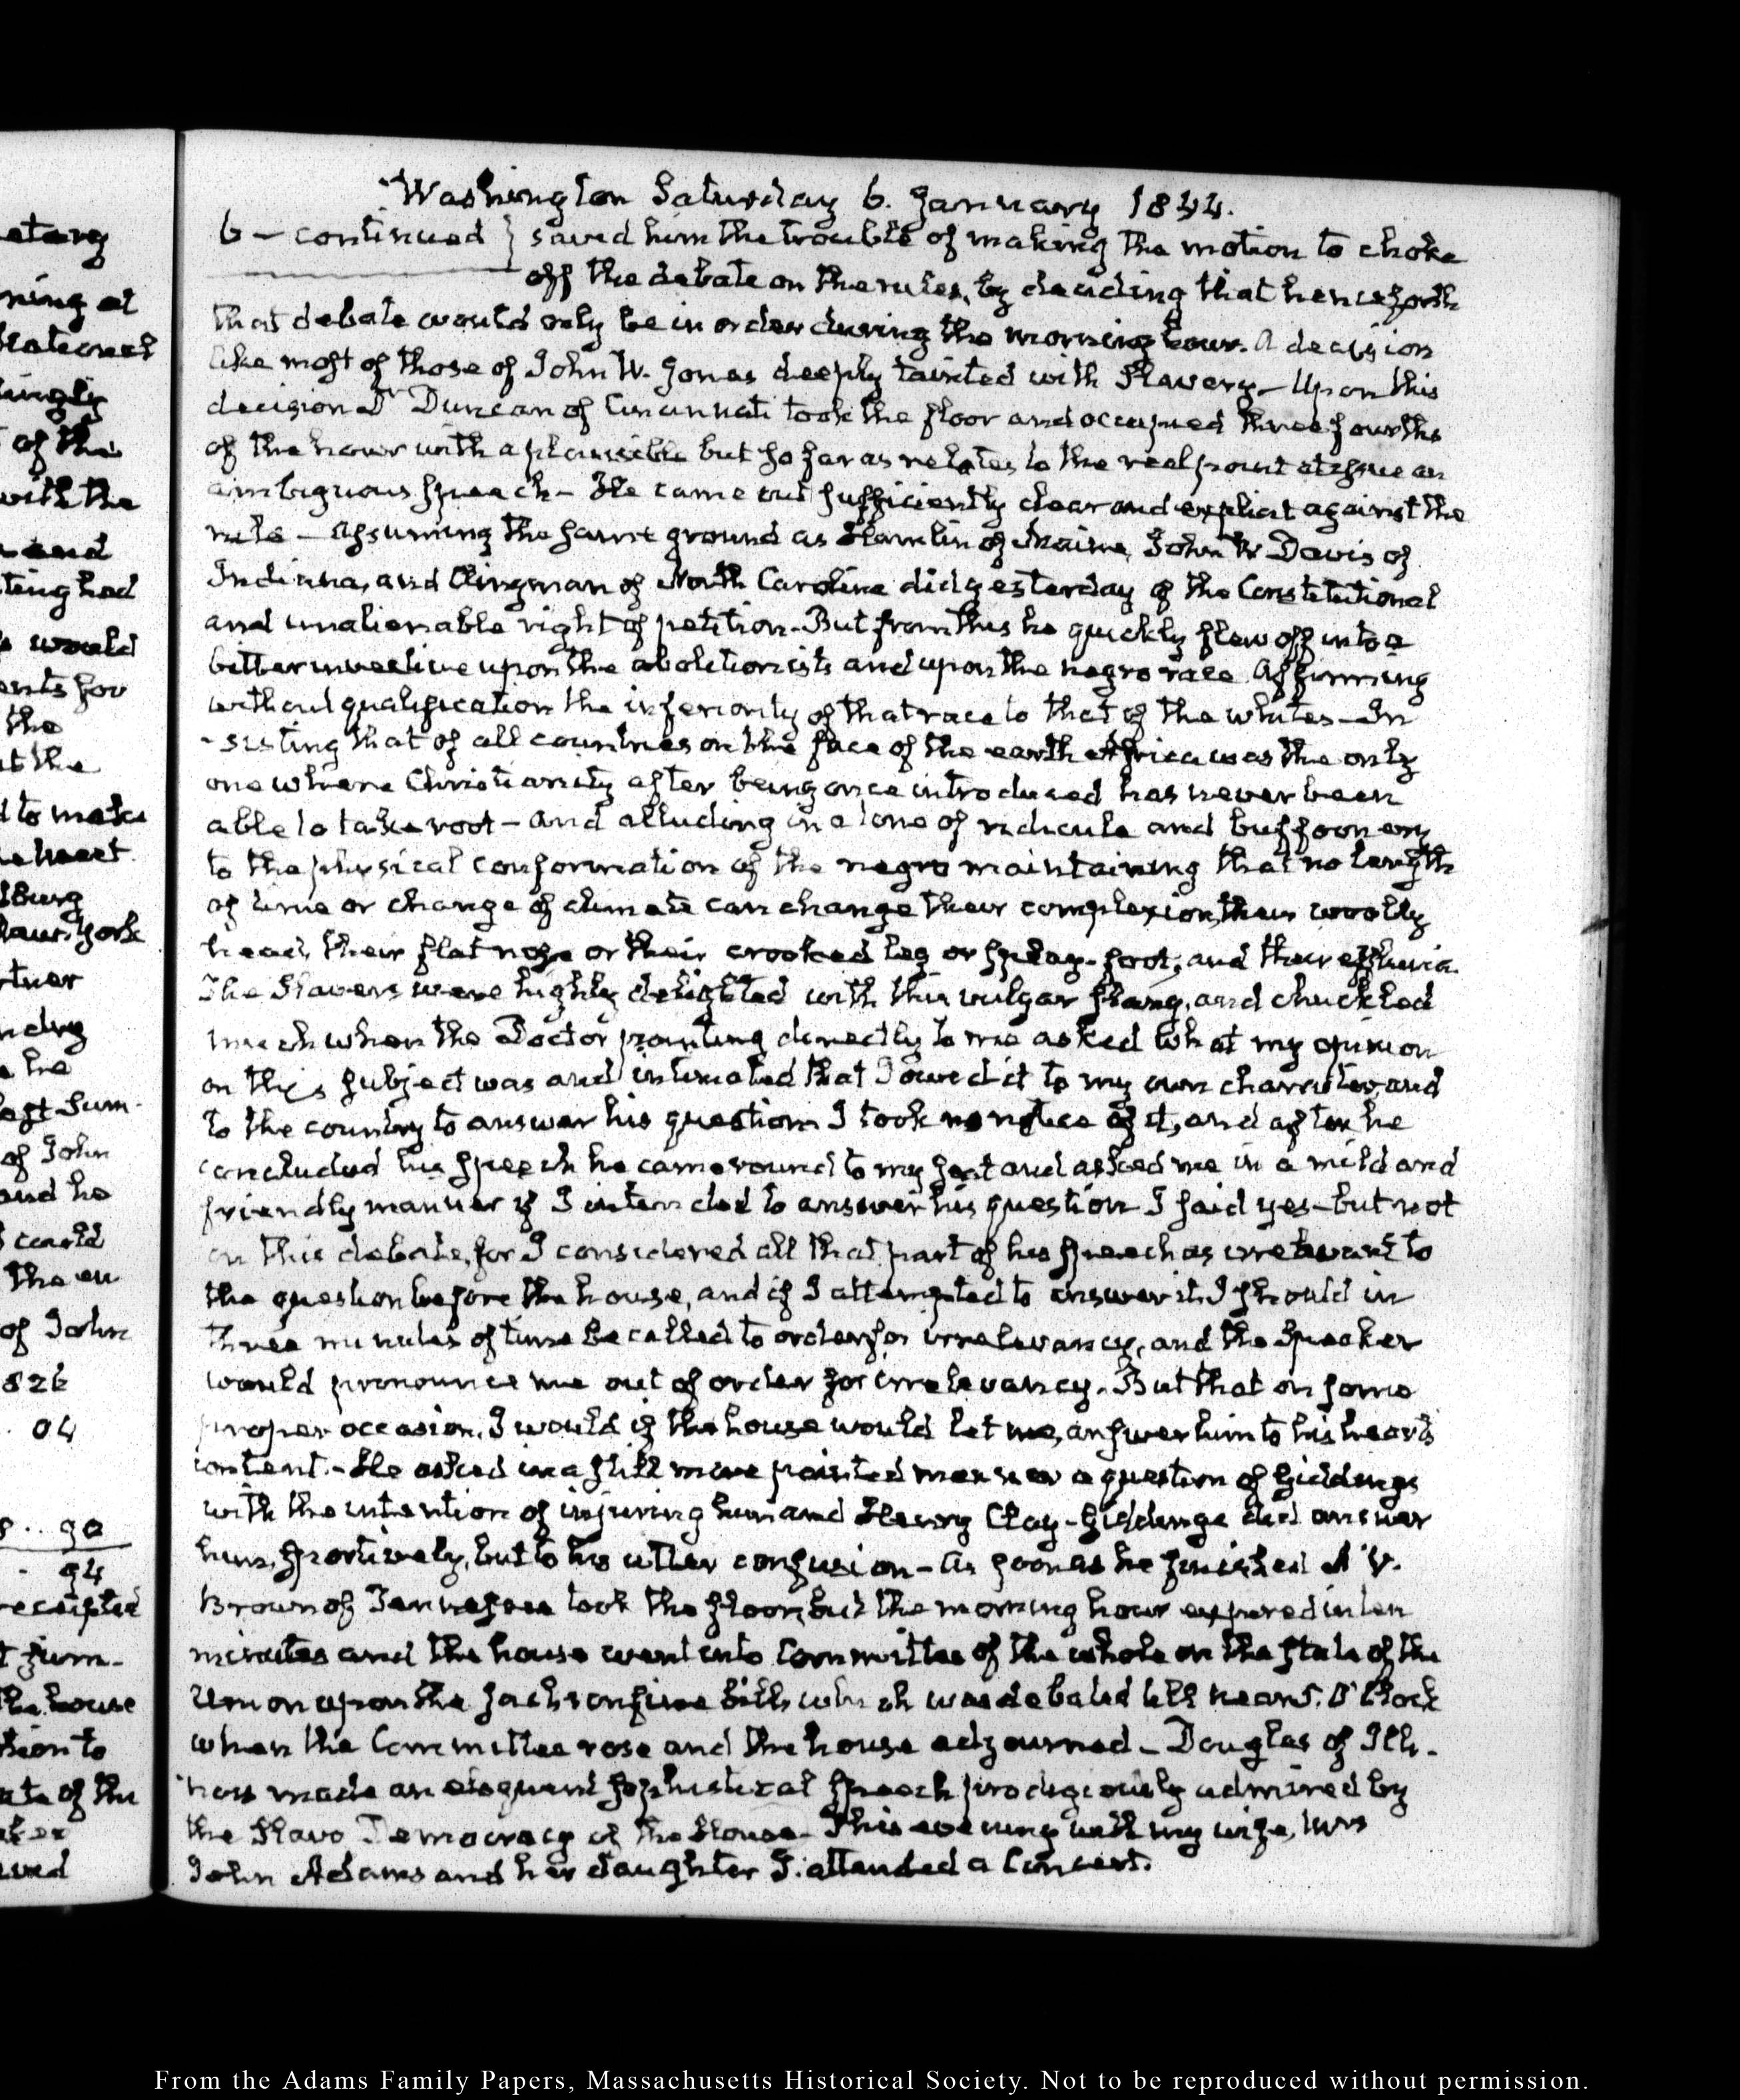 Washington Saturday 6. January 1844.
6 — continued } saved him the trouble of making the motion to choke
off the debate on the rules, by deciding that henceforth
that debate would only be in order during the morning hour. A decision
like most of those of John W. Jones deeply tainted with Slavery — Upon this
decision Dr Duncan of Cincinnati took the floor and occupied three fourths
of the hour with a plausible but so far as relates to the real point at issue an
ambiguous speech — He came out sufficiently clear and explicit against the
rule — assuming the same ground as Hamlin of Maine, John W Davis of
Indiana, and Clingman of North Carolina did yesterday of the Constitutional
and unalienable right of petition — But from this he quickly flew off into a
bitter invective upon the abolitionists and upon the negro race affirming
without qualification the inferiority of that race to that of the whites — In
-sisting that of all countries on the face of the earth Africa was the only
one where Christianity after being once introduced has never been
able to take root — and alluding in a tone of ridicule and buffoonery
to the physical conformation of the negro maintaining that no length
of time or change of climate can change their complexion, their woolly
head, their flat nose or their crooked leg or splay-foot, and their effluvia.
The Slavers were highly delighted with this vulgar slang, and chuckled
much when the Doctor pointing directly to me asked what my opinion
on this subject was and intimated that I owed it to my own character, and
to the country to answer his question I took no notice of it, and after he
concluded his speech he came round to my seat and asked me in a mild and
friendly manner if I intended to answer his question I said yes — but not
in this debate, for I considered all that part of his speech as irrelevant to
the question before the house, and if I attempted to answer it I should in
three minutes of time be called to order for irrelevancy, and the Speaker
would pronounce me out of order for irrelevancy. But that on some
proper occasion, I would if the house would let me, answer him to his heart's
content. — He asked in a still more pointed manner a question of Giddings
with the intention of injuring him and Henry Clay — Giddings did answer
him, sportively, but to his utter confusion — As soon as he finished A. V.
Brown of Tennessee took the floor, but the morning hour expired in ten
minutes and the house went into Committee of the whole on the State of the
Union upon the Jackson fine bill, which was debated till near 5. O'Clock
when the Committee rose and the house adjourned — Douglas of Illi-
nois made an eloquent sophistical speech prodigiously admired by
the Slave Democracy of the House — This evening with my wife, Mrs
John Adams and her daughter I attended a Concert.
etary
ning at
ingly
of the
with the
and
ting had
would
ents for
the
at the
d to make
heart
York
he
last Sum-
of John
and he
I could
the en
of John
826
04
8 .. 90
94
t firm-
the house
tion to
ate of the
From the Adams Family Papers, Massachusetts Historical Society. Not to be reproduced without permission.